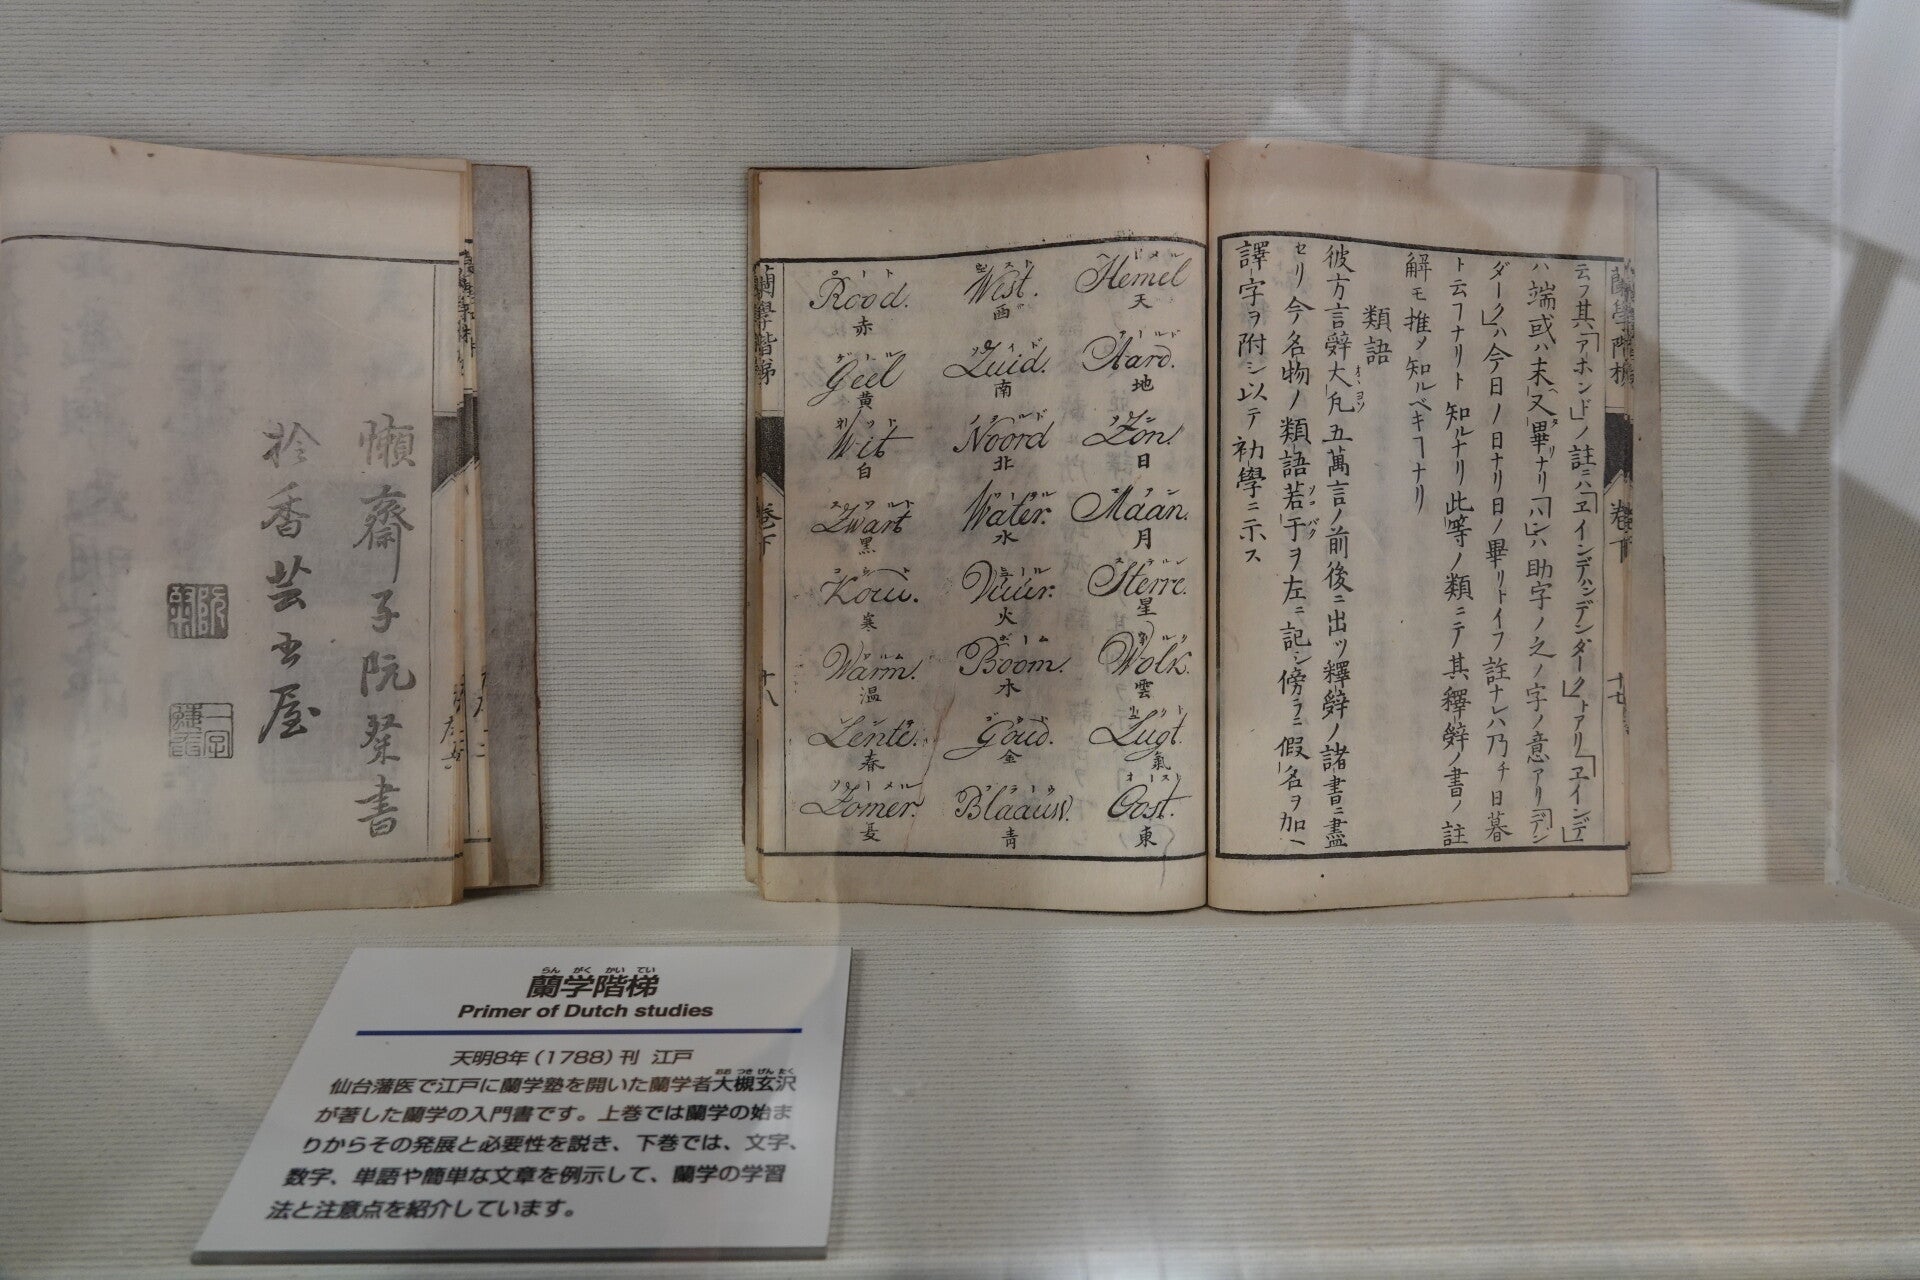 云フ其「アホンド」ノ註ニハ「ヱインデハンデンダーク」トアリ「ヱインデ」
ハ端或ハ末「又」畢ナリ「ハン」ハ助字ノ之ノ字ノ意アリ「デン
ダーク」ハ今日ノ日ナリ日ノ畢リトイフ註ナレハ乃チ日暮
ト云フナリト知ルナリ此等ノ類ニテ其釋辭ノ書ノ註
解モ推メ知ルベキナリ
類語
彼方言辭大凡五萬言ノ前後ニ出ツ釋辭ノ諸書ニ盡
セリ今名物ノ類語若干ヲ左ニ記シ傍ラニ假名ヲ加ヘ
譯字ヲ附シ以テ初學ニ示ス
蘭學階梯 卷下 十七
Hemel
天
Aard.
地
Zon.
日
Maan.
月
Sterre.
星
Wolk.
雲
Lugt.
氣
Oost.
東
West.
西
Zuid.
南
Noord
北
Water.
水
Vuur.
火
Boom.
木
Goud.
金
Blaauw.
青
Rood.
赤
Geel
黄
Wit
白
Zwart
黒
Kou.
寒
Warm.
温
Lente.
春
Zomer.
夏
蘭學階梯 卷下 十八
懶齋子阮瑩書
於香芸書屋
蘭学階梯
らん がく かい てい
Primer of Dutch studies
天明8年(1788)刊 江戸
仙台藩医で江戸に蘭学塾を開いた蘭学者大槻玄沢
おお つき げん たく
が著した蘭学の入門書です。上巻では蘭学の始ま
りからその発展と必要性を説き、下巻では、文字、
数字、単語や簡単な文章を例示して、蘭学の学習
法と注意点を紹介しています。